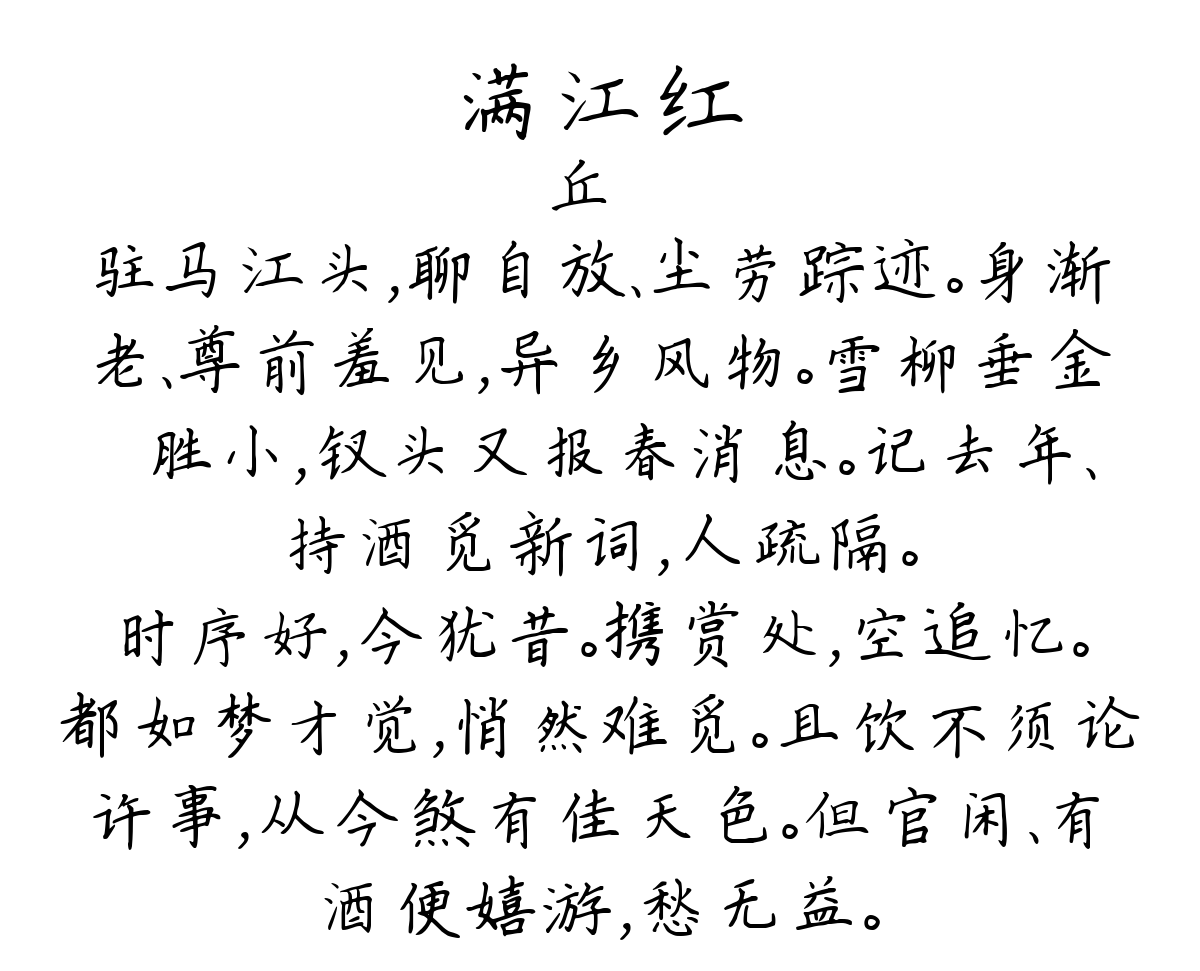 满江红
丘
驻马江头,聊自放、尘劳踪迹。身渐
老、尊前羞见,异乡风物。雪柳垂金
胜小,钗头又报春消息。记去年、
持酒觅新词,人疏隔。
时序好,今犹昔。携赏处,空追忆。
都如梦才觉,悄然难觅。且饮不须论
许事,从今煞有佳天色。但官闲、有
酒便嬉游,愁无益。